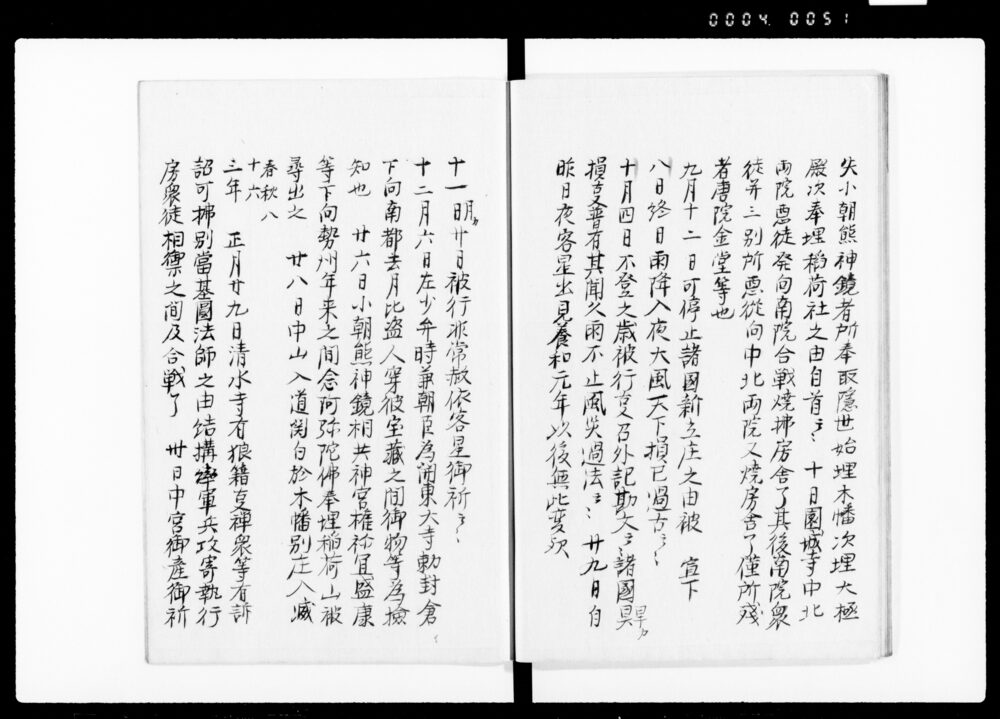 0004 0051
失小朝熊神鏡者所奉取隠世始埋木幡次埋大極
殿次奉埋稲荷社之由自首云々 十日園城寺中北
両院悪徒発向南院合戦焼拂房舎了其後南院衆
徒并三別所悪従向中北両院又焼房舎了僅所残
者唐院金堂等也
九月十二日可停止諸國新立庄之由被 宣下
八日終日雨降入夜大風天下損亡過古云々
十月四日不登之歳被行事召外記勘文云々諸國異
旱力
損事普有其聞久雨不止風災過法云々 廿九日自
昨日夜客星出見養和元年以後無此変歟
十一月 廿日被行非常赦依客星御祈云々
明
十二月六日左少弁時兼朝臣為開東大寺勅封倉
下向南都去月比盗人穿彼宝蔵之間御物等為撿
知也 廿六日小朝熊神鏡相共神宮権祢宜盛康
等下向勢州年来之間念阿弥陀佛奉埋稲荷山被
尋出之 廿八日中山入道関白於木幡別庄入滅
春秋八
十六
三年 正月廿九日清水寺有狼籍事禅衆等有訴
訟可拂別當基圓法師之由結構率軍兵攻寄執行
房衆徒相禦之間及合戦了 卅日中宮御産御祈